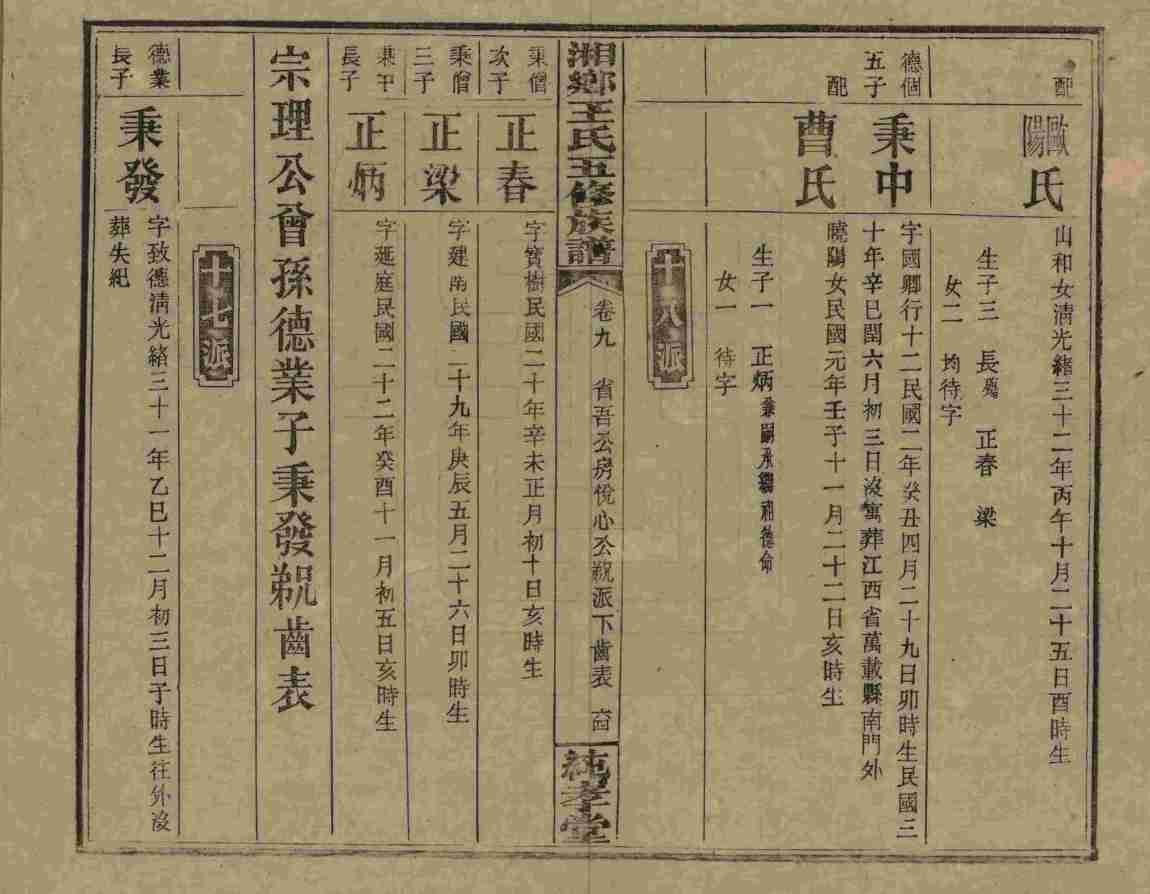 配
歐陽氏
山和女清光緒三十二年丙午十月二十五日酉時生
生子三 長殤 正春 梁
女二 均待字
德個五子
秉中
字國卿行十二民國二年癸丑四月二十九日卯時生民國三
十年辛巳閏六月初三日沒寓葬江西省萬載縣南門外
配
曹氏
曉陽女民國元年壬子十一月二十二日亥時生
生子一 正炳兼嗣承繼祖德命
女一 待字
十八派
湘鄉王氏五修族譜
卷九 省吾公房悅心公派下齒表
純孝堂
秉僧次子
正春
字寶樹民國二十年辛未正月初十日亥時生
秉僧三子
正梁
字建南民國二十九年庚辰五月二十六日卯時生
秉中長子
正炳
字延庭民國二十二年癸酉十一月初五日亥時生
宗理公曾孫德業子秉發派齒表
十七派
德業長子
秉發
字致德清光緒三十一年乙巳十二月初三日子時生往外沒
葬失紀